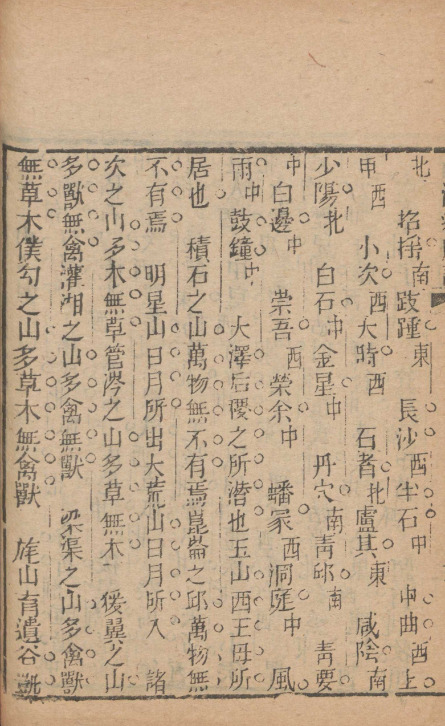 北 招搖南 跂踵東 長沙西 牛石中 中曲西 上
申西 小次西 大時西 石者北 盧其東 咸陰南
少陽北 白石中 金星中 丹穴南 靑邱南 靑要
中 白邊中 崇吾西 榮余中 嶓冢西 洞庭中 風
雨中 鼓鐘中 大澤后稷之所潛也玉山西王母所
居也 積石之山萬物無不有焉崑崙之邱萬物無
不有焉 明星山日月所出大荒山日月所入 諸
次之山多木無草管涔之山多草無木 猨翼之山
多獸無禽灌湘之山多禽無獸 梁渠之山多禽獸
無草木僕勾之山多草木無禽獸 旄山有遺谷